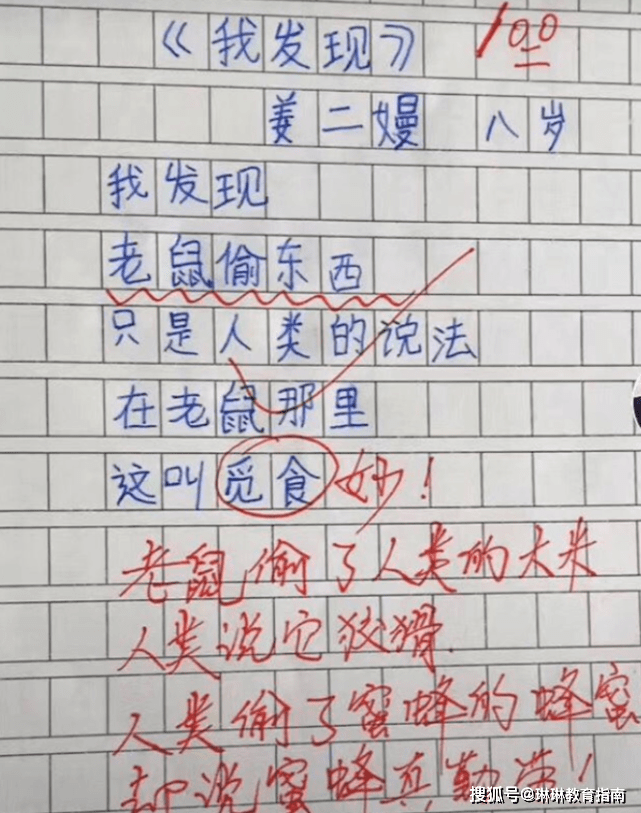 《我发现》 100
姜二嫚 八岁
我发现
老鼠偷东西
只是人类的说法
在老鼠那里
这叫觅食 妙！
老鼠偷了人类的大米
人类说它狡猾.
人类偷了蜜蜂的蜂蜜
却说蜜蜂真勤劳！
搜狐号@琳琳教育指南